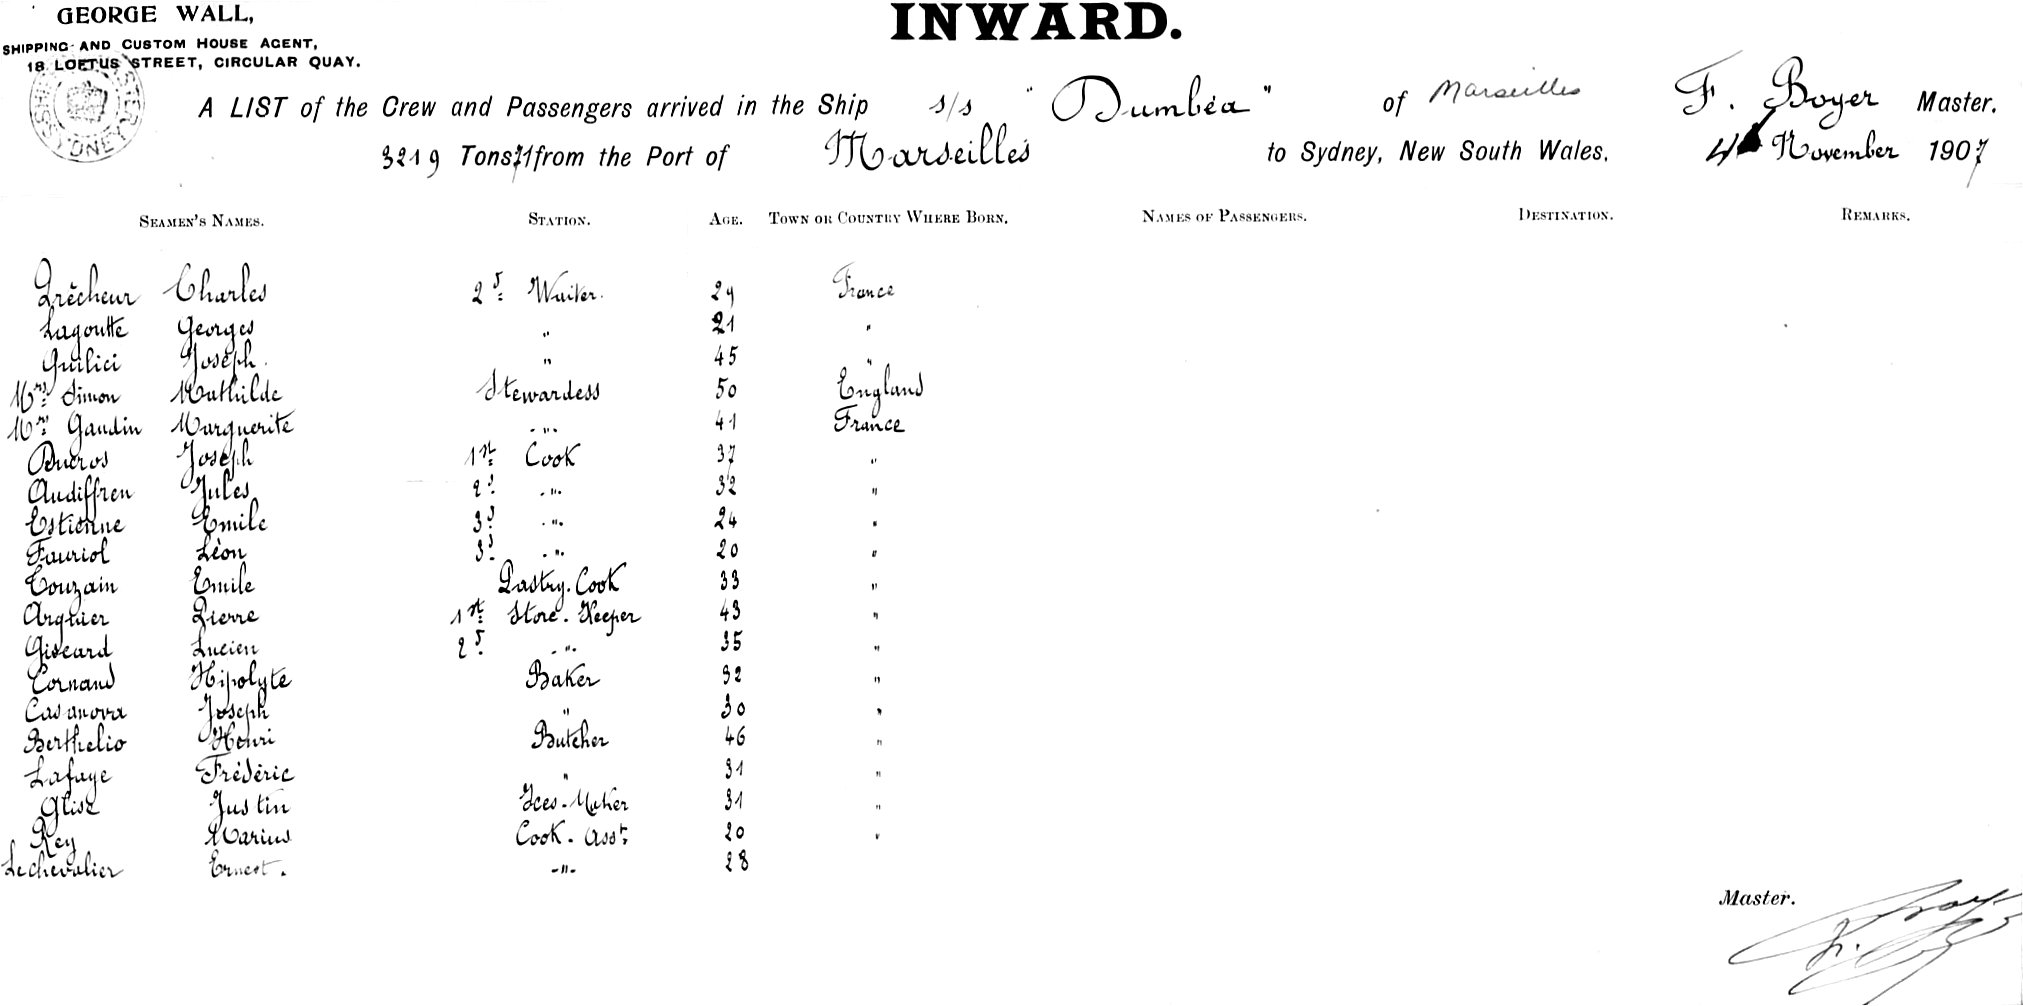 GEORGE WALL,
SHIPPING AND CUSTOM HOUSE AGENT,
18 LOFTUS STREET, CIRCULAR QUAY.
INWARD.
A LIST of the Crew and Passengers arrived in the Ship s/s "Dumbéa" of Marseilles F. Boyer Master.
3219 Tons 71 from the Port of Marseilles to Sydney, New South Wales, 4 November 1907
SEAMEN'S NAMES. STATION. AGE. TOWN OR COUNTRY WHERE BORN. NAMES OF PASSENGERS. DESTINATION. REMARKS.
Prêcheur Charles 2d Waiter. 29 France
Lagoutte Georges " 21 "
Quilici Joseph. " 45 "
Mrs Simon Mathilde Stewardess 50 England
Mrs Gaudin Marguerite -"- 41 France
Ducros Joseph 1st Cook 37 "
Audiffren Jules 2d -"- 32 "
Estienne Emile 3d -"- 24 "
Fauriol Léon 3d -"- 20 "
Couzain Emile Pastry-Cook 33 "
Arquier Pierre 1st Store-Keeper 43 "
Giscard Lucien 2d -"- 35 "
Cornand Hipolyte Baker 32 "
Casanova Joseph " 30 "
Berthelio Henri Butcher 46 "
Lafaye Frédéric " 31 "
Glise Justin Ices-Maker 31 "
Rey Marius Cook-Asst. 20 "
Lechevalier Ernest. -"- 28
Master.